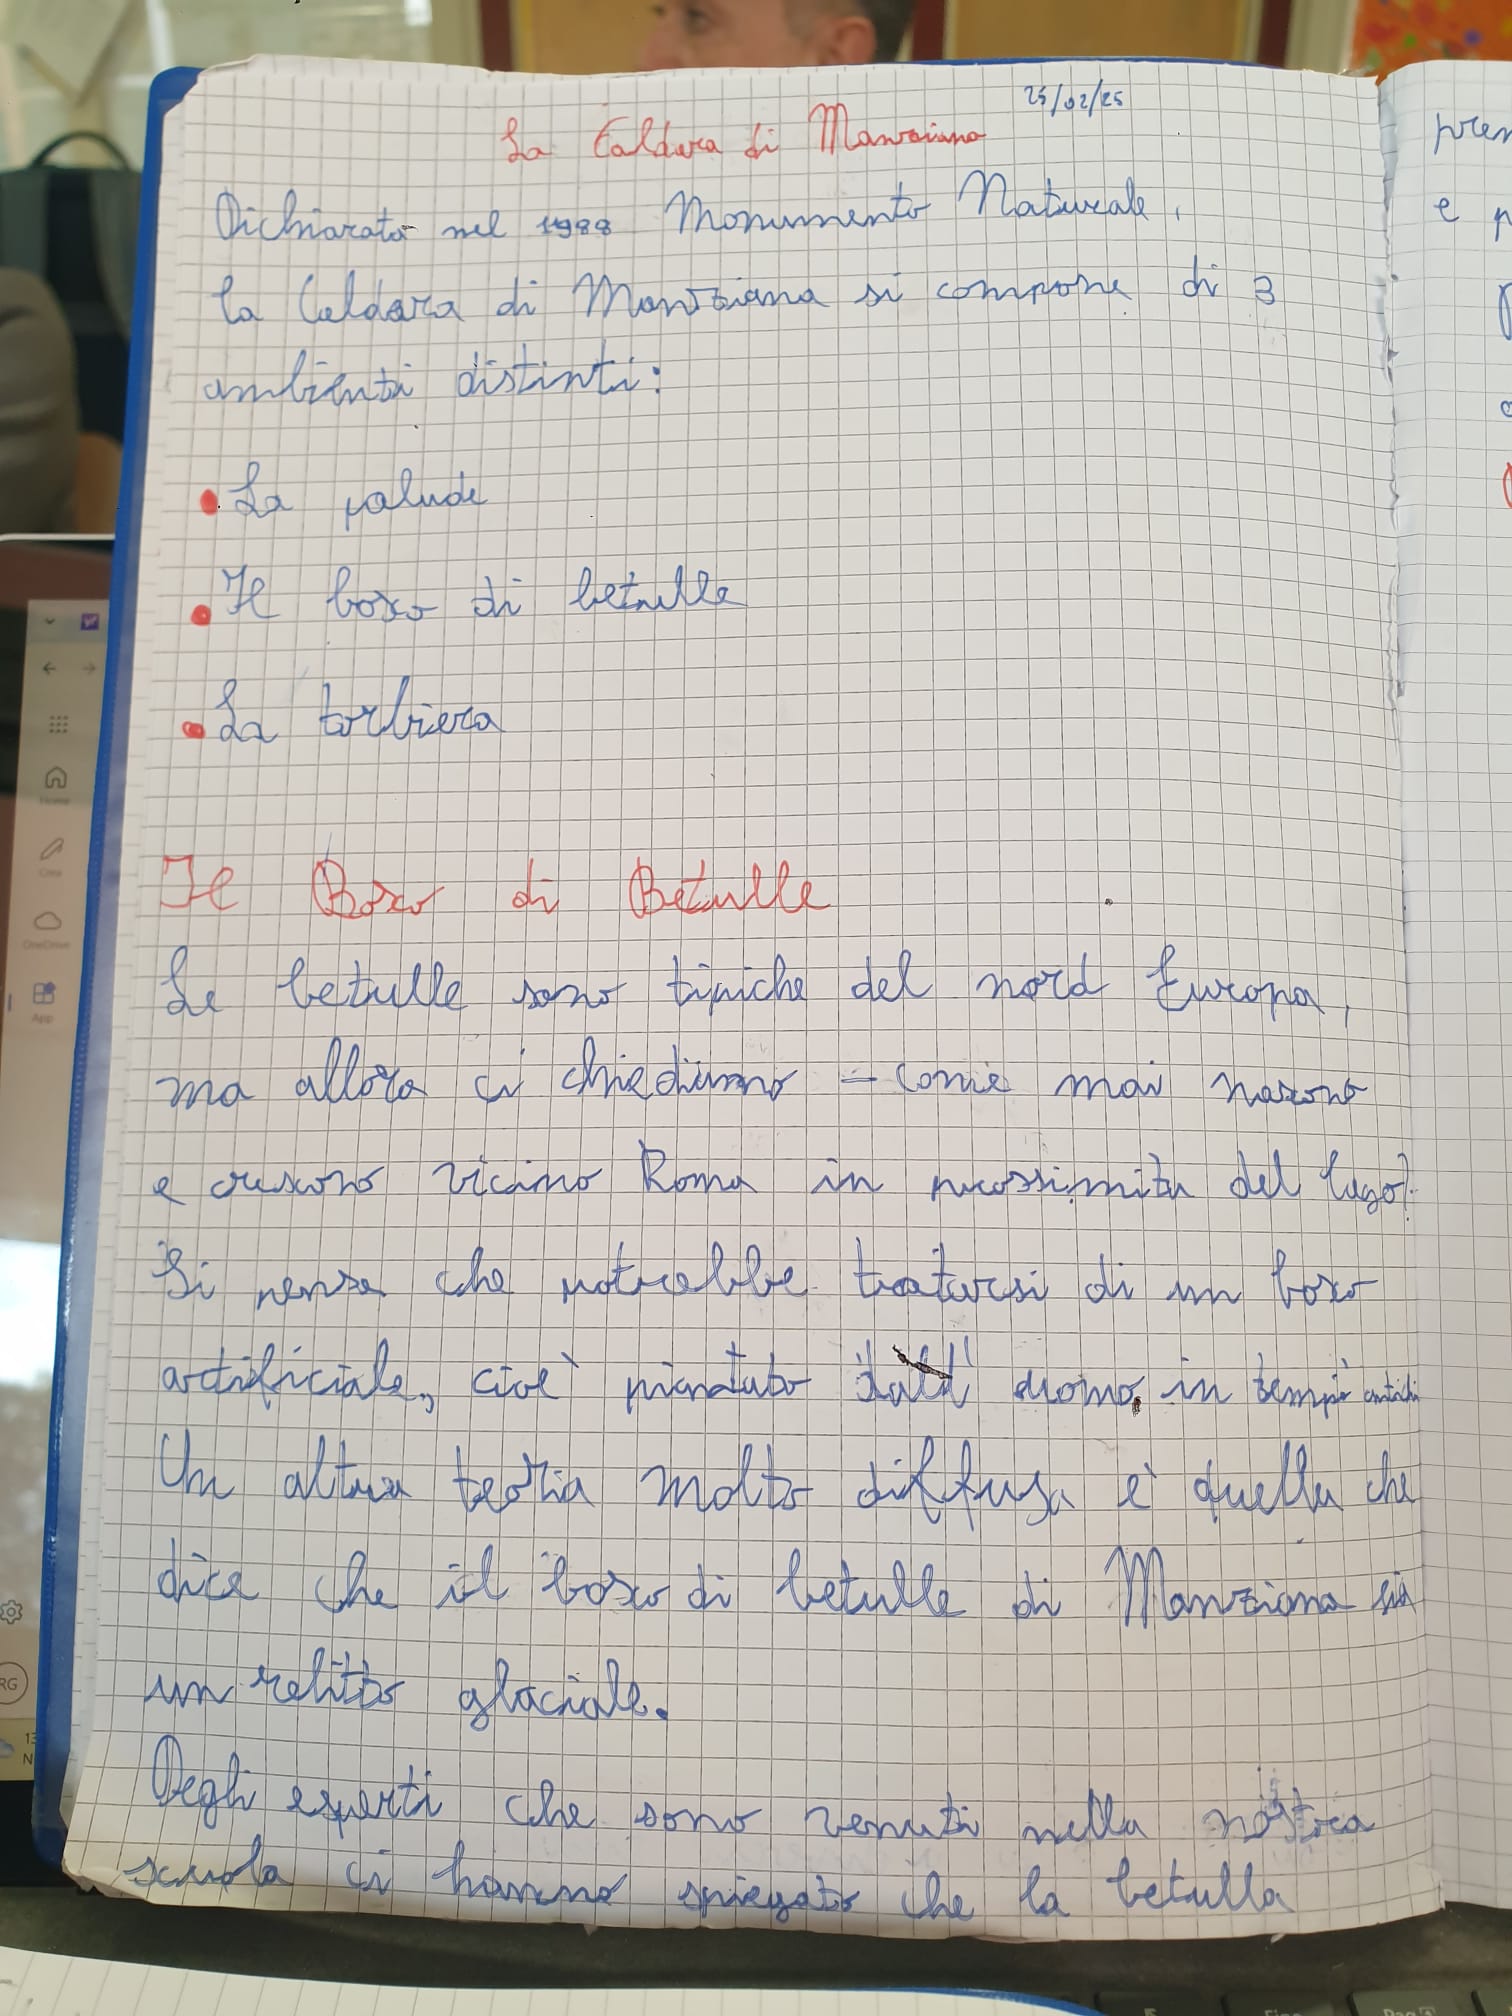 25/02/25
La Caldara di Manziana
Dichiarato nel 1988 Monumento Naturale,
la Caldara di Manziana si compone di 3
ambienti distinti:
• La palude
• Il bosco di betulle
• La torbiera
Il Bosco di Betulle
Le betulle sono tipiche del nord Europa,
ma allora ci chiediamo - come mai nascono
e crescono vicino Roma in prossimità del lago?
Si pensa che potrebbe trattarsi di un bosco
artificiale, cioè piantato dall' uomo, in tempi antichi
Un altra teoria molto diffusa è quella che
dice che il bosco di betulle di Manziana sia
un relitto glaciale.
Degli esperti che sono venuti nella nostra
scuola ci hanno spiegato che la betulla
pren
e p
Home
Crea
OneDrive
App
RG
13
N